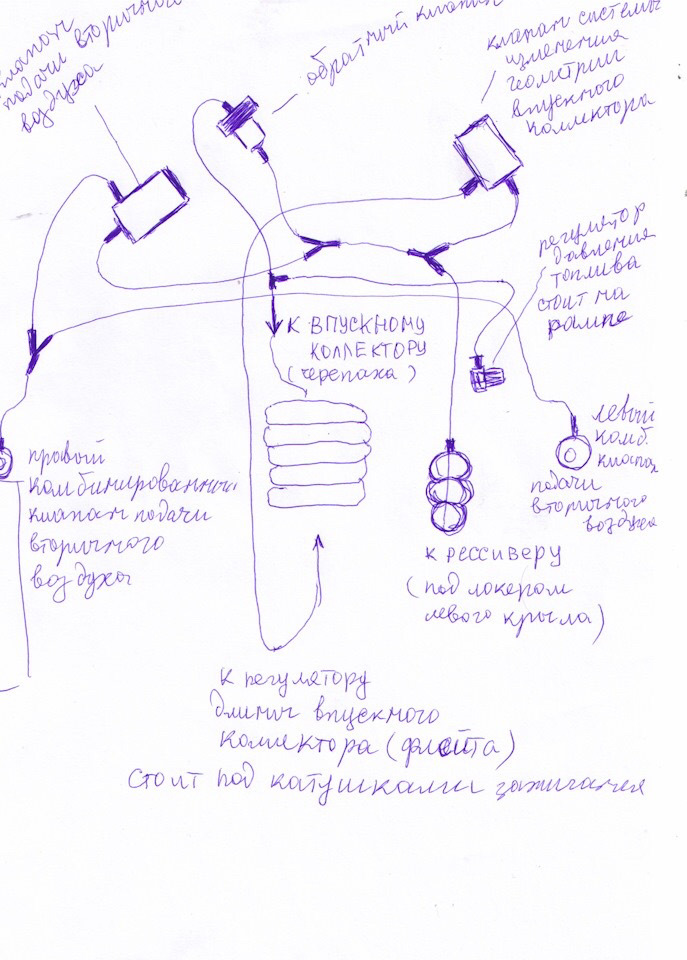 клапан
подачи вторичного
воздуха
обратный клапан
клапан системы
изменения
геометрии
впускного
коллектора
регулятор
давления
топлива
стоит на
рампе
К ВПУСКНОМУ
КОЛЛЕКТОРУ
(черепаха)
левый
комб.
клапан
подачи
вторичного
воздуха
правый
комбинированный
клапан подачи
вторичного
воздуха
К РЕССИВЕРУ
(под локером
левого крыла)
К регулятору
длины впускного
коллектора (флейта)
стоит под катушками зажигания